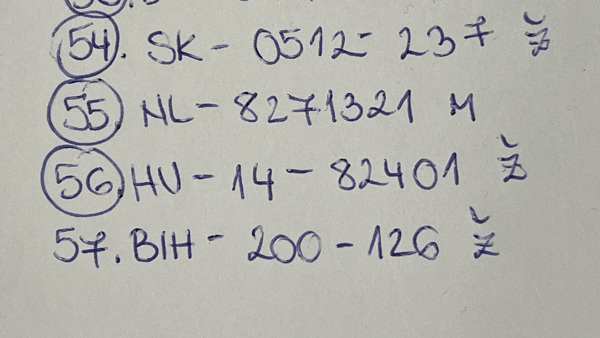 54. SK - 0512 - 237 Ž
55. NL - 8271321 M
56. HU - 14 - 82401 Ž
57. BIH - 200 - 126 Ž